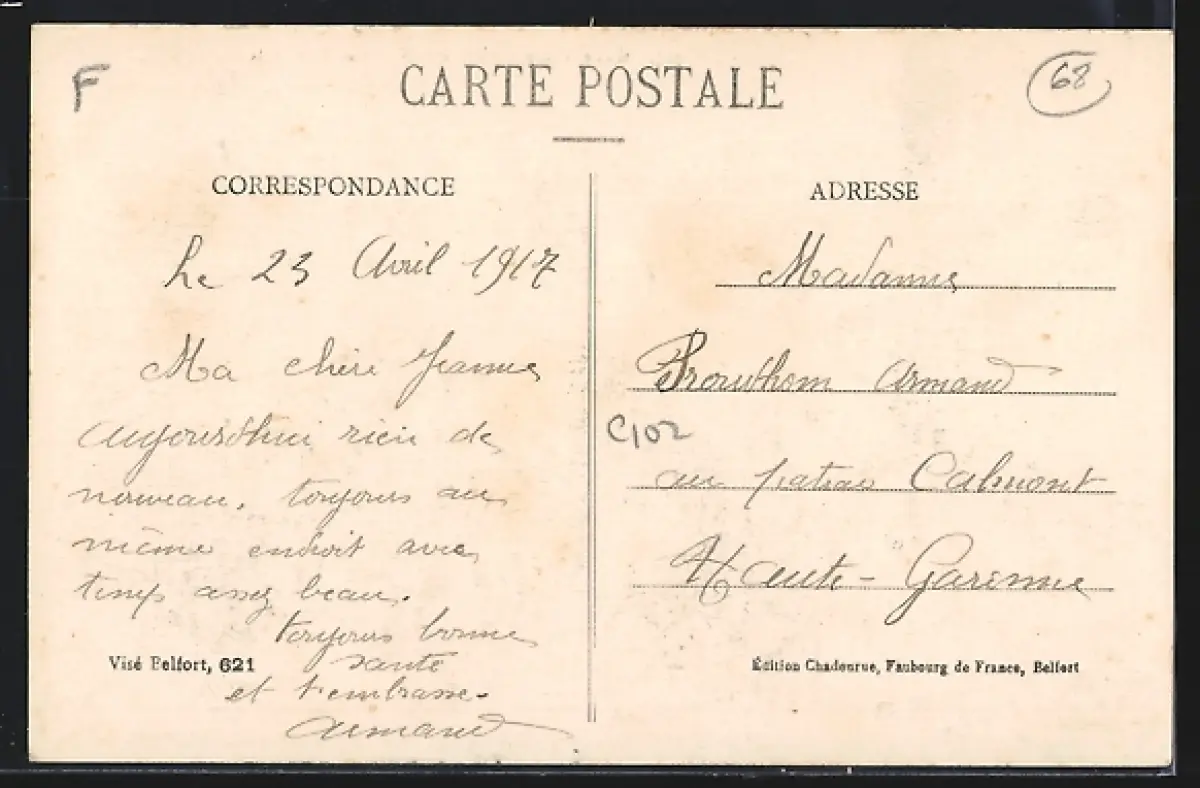 F
CARTE POSTALE
68
CORRESPONDANCE
Le 23 Avril 1917
Ma chère Jeanne
aujourd'hui rien de
nouveau. toujours au
même endroit avec
temps assez beau.
toujours bonne
santé
et t'embrasse.
Armand
Visé Belfort, 621
ADRESSE
Madame
Prouthom Armand
C102
au Calmont
Haute-Garonne
Édition Chadourue, Faubourg de France, Belfort